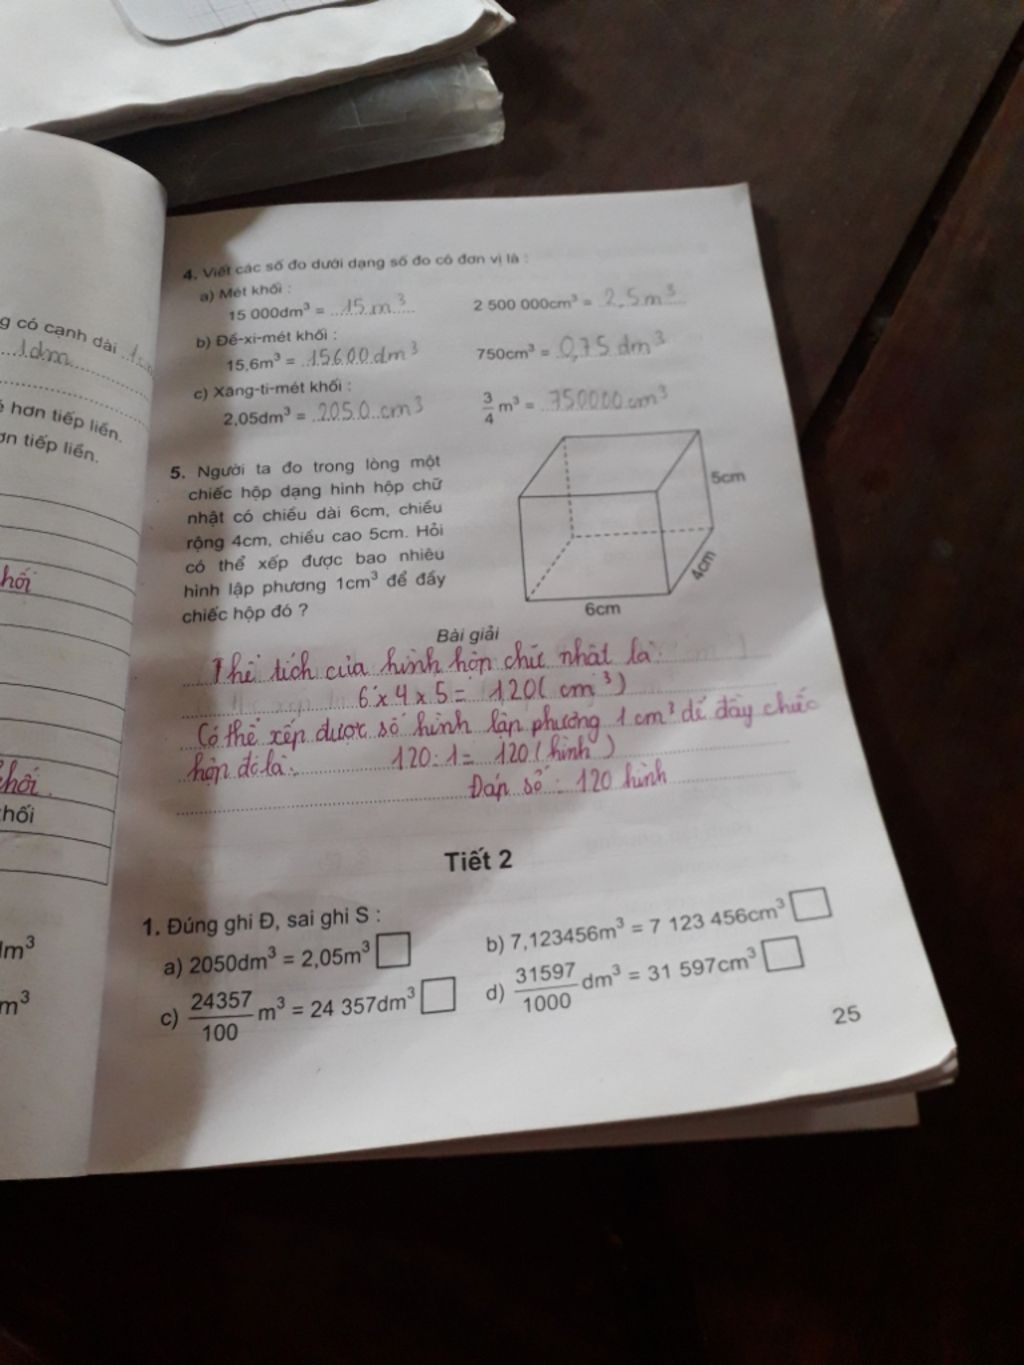 g có cạnh dài
1dm
ơn tiếp liền.
hơn tiếp liền.
hối
khối.
khối
dm³
m³
4. Viết các số đo dưới dạng số đo có đơn vị là :
a) Mét khối :
15 000dm³ = 15 m³
2 500 000cm³ = 2,5 m³
b) Đề-xi-mét khối :
15,6m³ = 15600 dm³
750cm³ = 0,75 dm³
c) Xăng-ti-mét khối :
2,05dm³ = 2050 cm³
3/4 m³ = 750000 cm³
5. Người ta đo trong lòng một
chiếc hộp dạng hình hộp chữ
nhật có chiều dài 6cm, chiều
rộng 4cm, chiều cao 5cm. Hỏi
có thể xếp được bao nhiêu
hình lập phương 1cm³ để đầy
chiếc hộp đó ?
5cm
4cm
6cm
Bài giải
Thể tích của hình hộp chữ nhật là:
6 x 4 x 5 = 120 ( cm³ )
Có thể xếp được số hình lập phương 1 cm³ để đầy chiếc
hộp đó là:
120 : 1 = 120 ( hình )
Đáp số : 120 hình
Tiết 2
1. Đúng ghi Đ, sai ghi S :
a) 2050dm³ = 2,05m³
b) 7,123456m³ = 7 123 456cm³
c) 24357/100 m³ = 24 357dm³
d) 31597/1000 dm³ = 31 597cm³
25